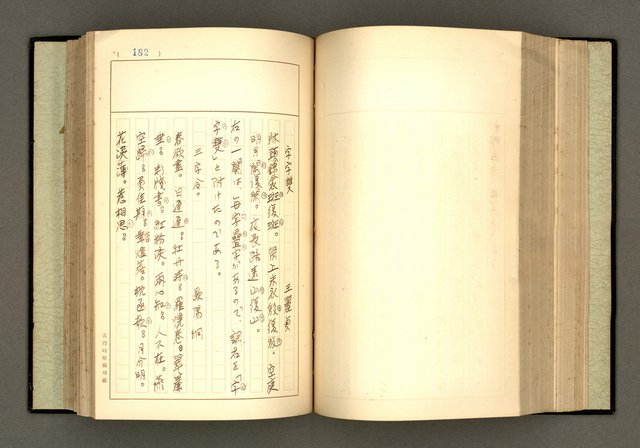 ( 182 )
字字雙 王麗貞
牀頭錦衾斑復斑。架上朱衣殷復殷。空庭
明月閑復閑。夜長路遠山復山。
右の一闋は、每字疊字があるので、調名を「字
字雙」と附けたのである。
三字令。 歐陽炯
春欲盡。日遲遲。牡丹時。羅幌卷。翠簾
垂。彩牋書。紅粉淚。兩心知。人不在。燕
空歸。負佳期。香燼落。枕函欹。月分明。
花淡薄。惹相思。